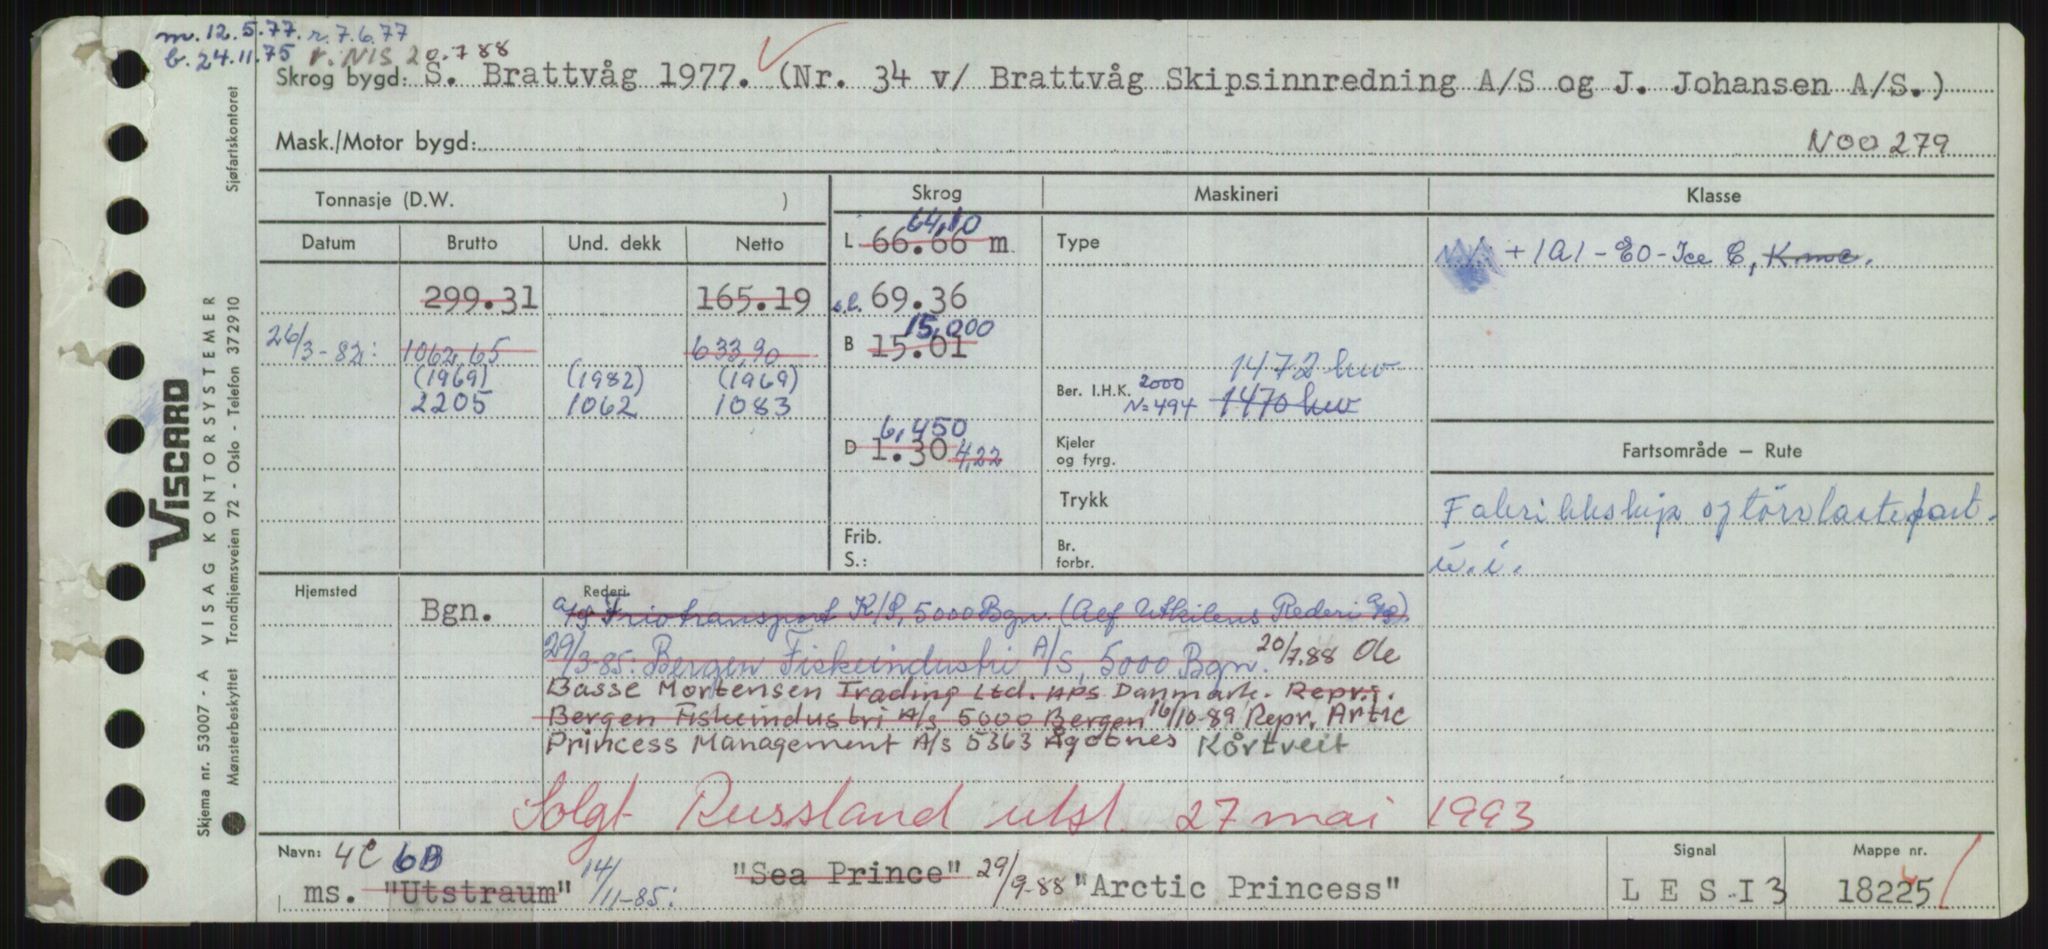 m. 12.5.77. r. 7.6.77
b. 24.11.75 r. NIS 20.788
Skrog bygd: S. Brattvåg 1977. (Nr. 34 v/ Brattvåg Skipsinnredning A/S og J. Johansen A/S.)
Mask./Motor bygd:
N00279
Tonnasje (D.W. )
Skrog
Maskineri
Klasse
Datum
Brutto
Und. dekk
Netto
64,10
L 66.66 m
Type
+1A1-EO-Ice C, Kmc.
299.31
165.19
s.l. 69.36
26/3-82: 1062,65
633,90
15,000
B 15.01
(1969)
(1982)
(1969)
1472 kw
2205
1062
1083
Ber. I.H.K. 2000
N=494 1470 kw
6,450
D 1.30 4,22
Kjeler
og fyrg.
Fartsområde – Rute
Trykk
Fabrikkskip og törrlastefart.
u.i.
Frib.
S.:
Br.
forbr.
Hjemsted
Rederi
Bgn.
A/S Friotransport K/S, 5000 Bgn. (Alf Utkilens Rederi A/S).
29/3-85: Bergen Fiskeindustri A/S, 5000 Bgn. 20/7.88 Ole
Basse Mortensen Trading Ltd. APS Danmark. Repr.:
Bergen Fiskeindustri A/S 5000 Bergen 16/10-89 Repr. Artic
Princess Management A/S 5363 Ågotnes Kårtveit
Solgt Russland utsl. 27 mai 1993
Navn: 4C 6B
ms. "Utstraum" 14/11-85: "Sea Prince" 29/9-88 "Arctic Princess"
Signal
L E S I 3
Mappe nr.
18225
VISCARD
Skjema nr. 53007 - A VISAG KONTORSYSTEMER
Mønsterbeskyttet Trondhjemsveien 72 - Oslo - Telefon 372910 Sjøfartskontoret